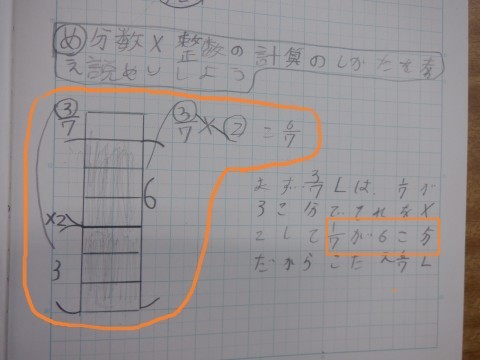 め 分数×整数の計算のしかたを考
え説明しよう
3/7
3/7×2=6/7
×2
6
3
まず、3/7Lは、1/7が
3こ分でそれを×
2して1/7が6こ分
だからこたえ6/7L